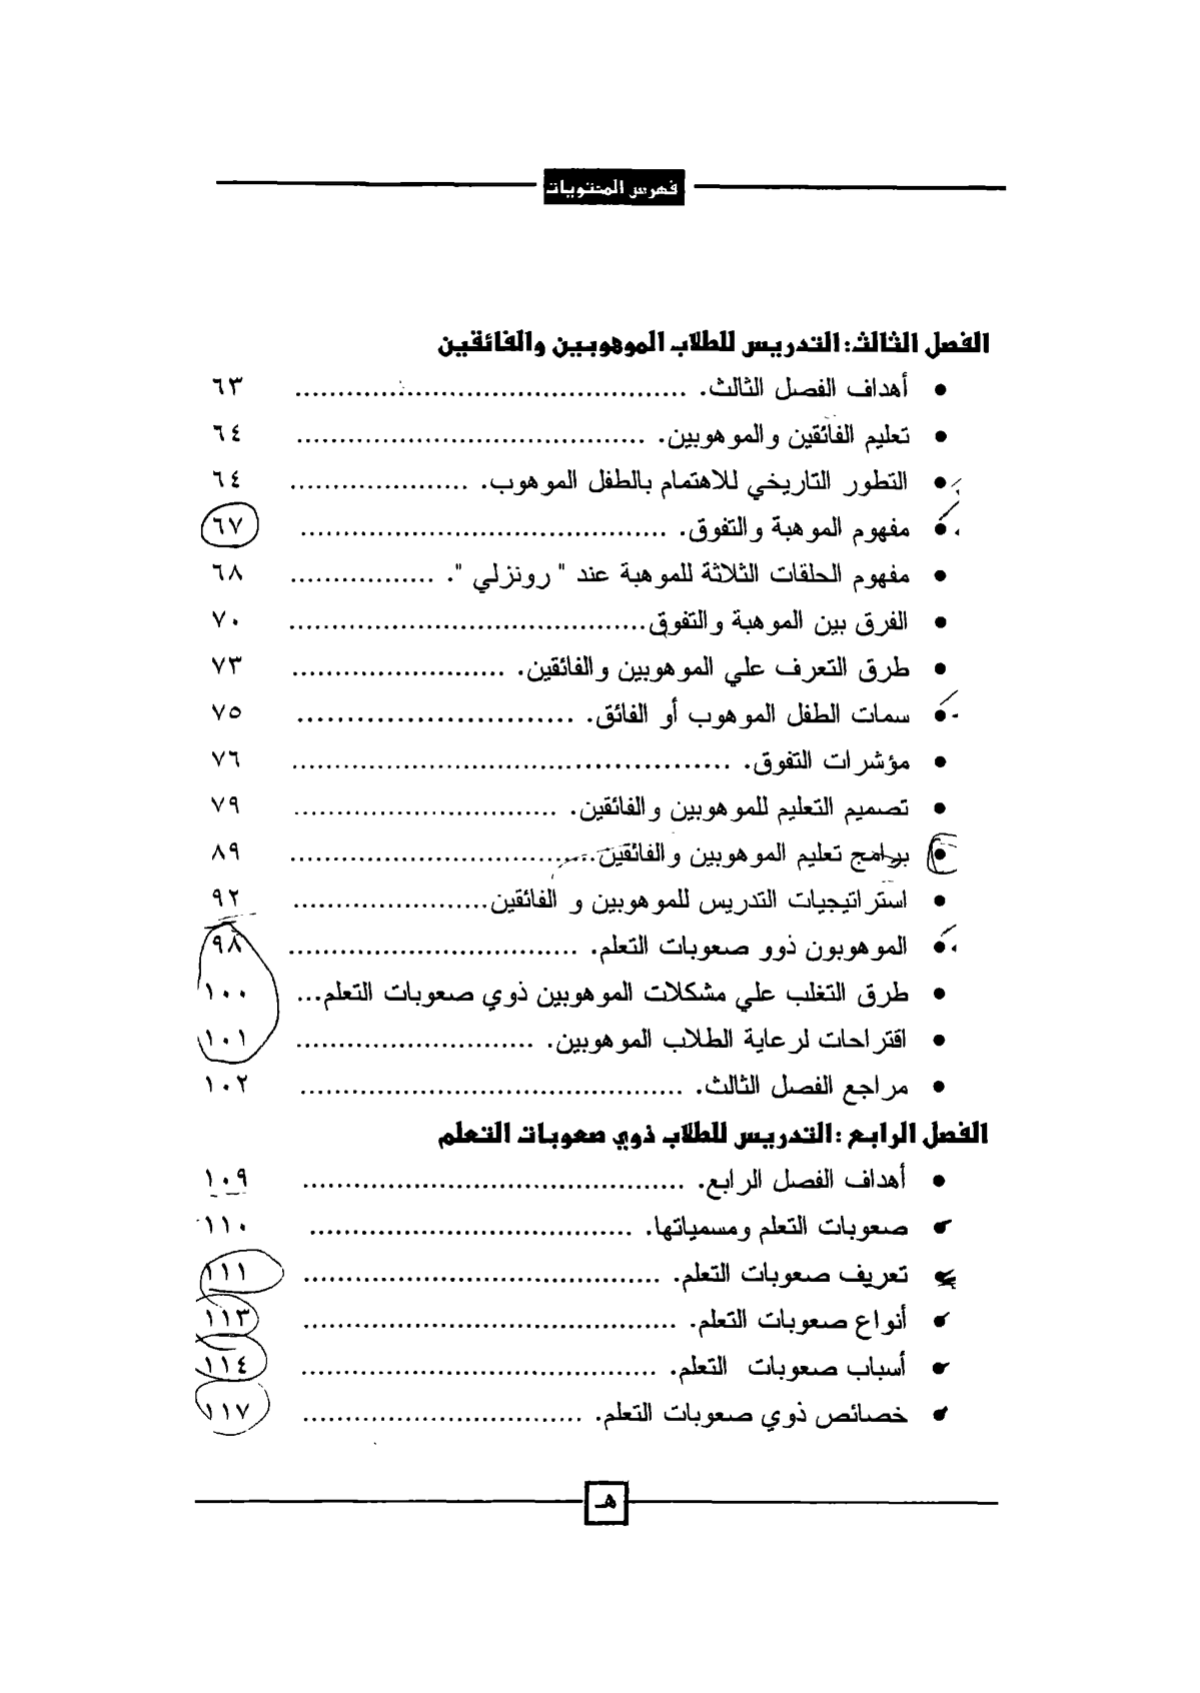 فهرس المحتويات
الفصل الثالث: التدريس للطلاب الموهوبين والفائقين
• أهداف الفصل الثالث. .............................................. ٦٣
• تعليم الفائقين والموهوبين. ......................................... ٦٤
• التطور التاريخي للاهتمام بالطفل الموهوب. ..................... ٦٤
• مفهوم الموهبة والتفوق. ........................................... ٦٧
• مفهوم الحلقات الثلاثة للموهبة عند " رونزلي ". ................. ٦٨
• الفرق بين الموهبة والتفوق.......................................... ٧٠
• طرق التعرف علي الموهوبين والفائقين. ......................... ٧٣
• سمات الطفل الموهوب أو الفائق. ................................. ٧٥
• مؤشرات التفوق. ................................................... ٧٦
• تصميم التعليم للموهوبين والفائقين. ............................... ٧٩
• برامج تعليم الموهوبين والفائقين.................................... ٨٩
• استراتيجيات التدريس للموهوبين و الفائقين....................... ٩٢
• الموهوبون ذوو صعوبات التعلم. .................................. ٩٨
• طرق التغلب علي مشكلات الموهوبين ذوي صعوبات التعلم... ١٠٠
• اقتراحات لرعاية الطلاب الموهوبين. ............................ ١٠١
• مراجع الفصل الثالث. ............................................. ١٠٢
الفصل الرابع :التدريس للطلاب ذوي صعوبات التعلم
• أهداف الفصل الرابع. ............................................. ١٠٩
• صعوبات التعلم ومسمياتها. ...................................... ١١٠
• تعريف صعوبات التعلم. .......................................... ١١١
• أنواع صعوبات التعلم. ............................................ ١١٣
• أسباب صعوبات التعلم. .......................................... ١١٤
• خصائص ذوي صعوبات التعلم. ................................. ١١٧
هـ